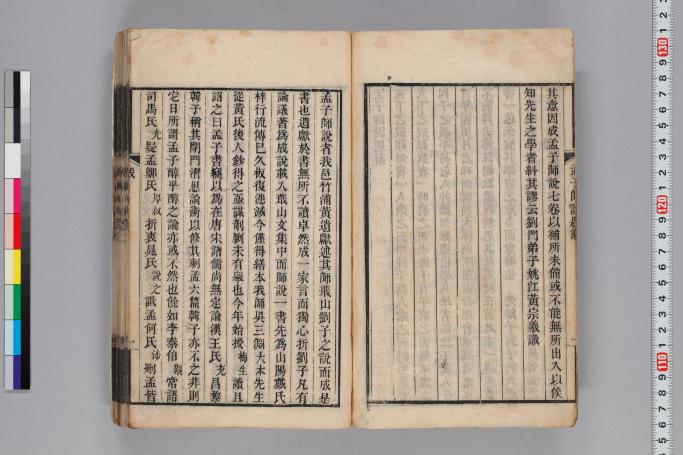 其意因成孟子師說七卷以補所未備或不能無所出入以俟
知先生之學者糾其謬云劉門弟子姚江黃宗羲識
孟子師說者我邑竹浦黃遺獻述其師蕺山劉子之說而成是
書也遺獻於書無所不讀卓然成一家言而獨心折劉子凡有
論議著爲成說載入蕺山文集中而師說一書先爲山陽戴氏
梓行流傳已久板復漶滅今僅得繕本我師吳三淵大本先生
從黃氏後人鈔得之亟謀剞劂未有舉也今年始授梅生讀且
詔之曰孟子書竊以爲在唐宋諸儒尚無定論漢王氏充昌黎
韓子稱其閉門濳思論衡以修其刺孟六篇韓子亦不之非則
它日所謂孟子醇乎醇之論亦或不然也餘如李泰伯覯常語
司馬氏光疑孟鄭氏厚叔折衷晁氏說之詆孟何氏涉刪孟皆